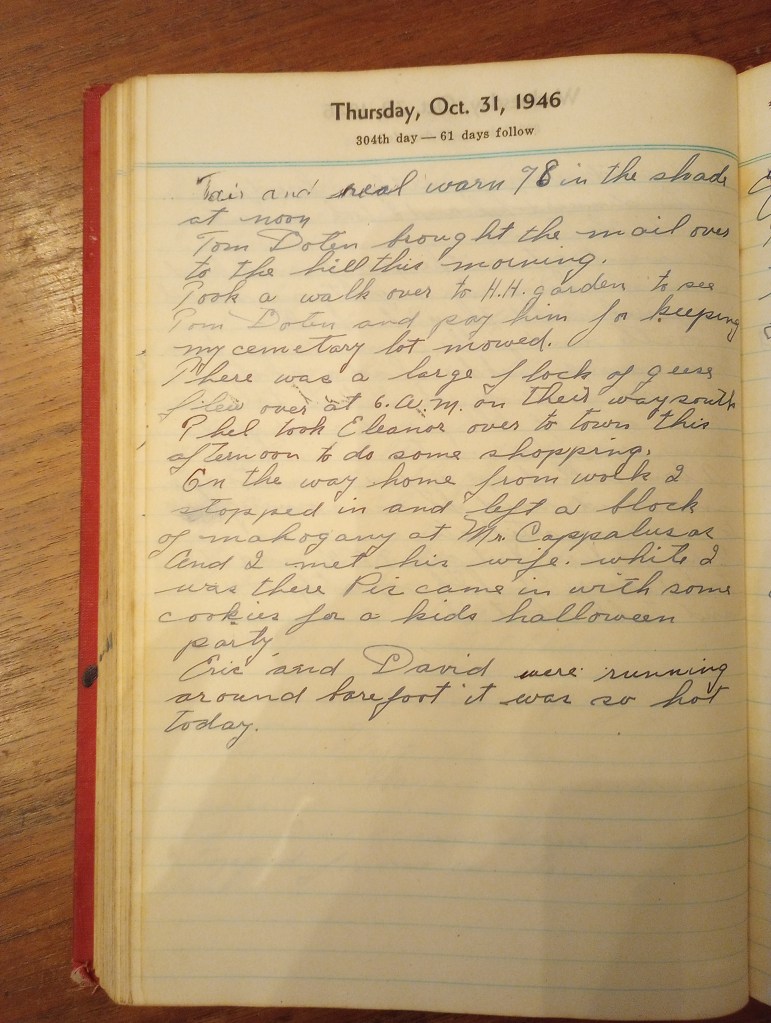 Thursday, Oct. 31, 1946
304th day — 61 days follow
Fair and real warm 78 in the shade
at noon
Tom Doten brought the mail over
to the hill this morning.
Took a walk over to H.H. garden to see
Tom Doten and pay him for keeping
my cemetary lot mowed.
There was a large flock of geese
flew over at 6. A.M. on their way south
Phel took Eleanor over to town this
afternoon to do some shopping.
On the way home from work I
stopped in and left a block
of mahogany at Mr. Cappalusas
And I met his wife. while I
was there Pix came in with some
cookies for a kids halloween
party
Eric and David were running
around barefoot it was so hot
today.